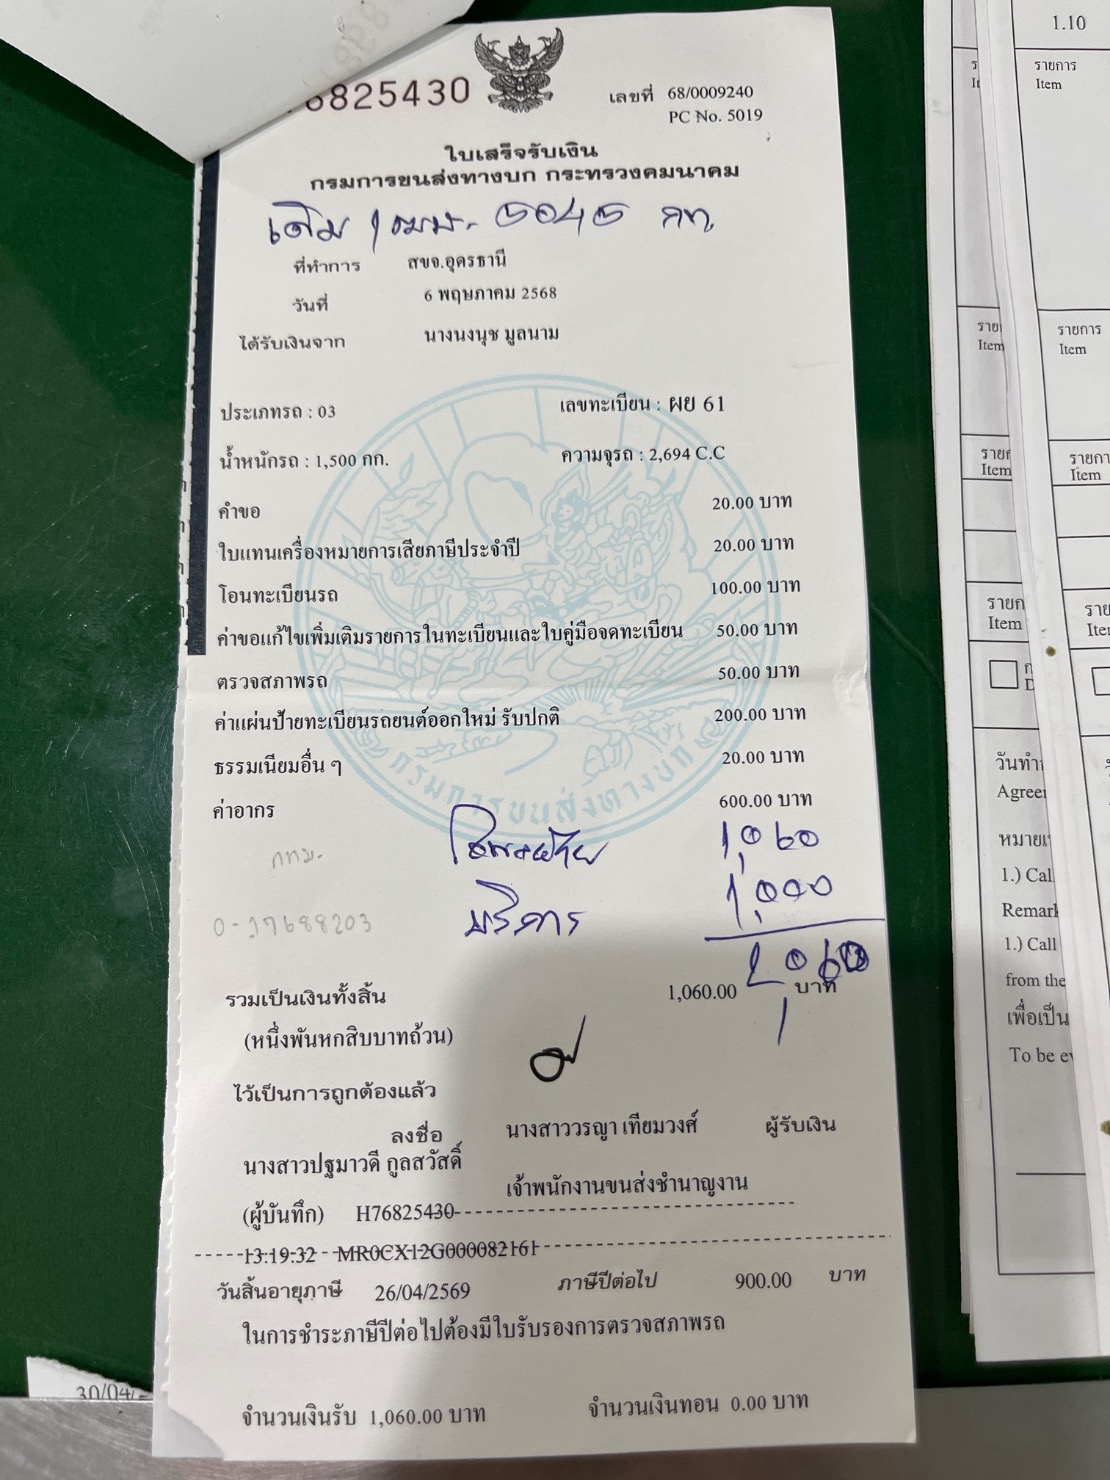 6825430
เลขที่ 68/0009240
PC No. 5019
ใบเสร็จรับเงิน
กรมการขนส่งทางบก กระทรวงคมนาคม
เดิม 1ฒฆ. 5045 กท.
ที่ทำการ สขจ.อุดรธานี
วันที่ 6 พฤษภาคม 2568
ได้รับเงินจาก นางนงนุช มูลนาม
ประเภทรถ : 03 เลขทะเบียน : ผย 61
น้ำหนักรถ : 1,500 กก. ความจุรถ : 2,694 C.C
คำขอ 20.00 บาท
ใบแทนเครื่องหมายการเสียภาษีประจำปี 20.00 บาท
โอนทะเบียนรถ 100.00 บาท
ค่าขอแก้ไขเพิ่มเติมรายการในทะเบียนและใบคู่มือจดทะเบียน 50.00 บาท
ตรวจสภาพรถ 50.00 บาท
ค่าแผ่นป้ายทะเบียนรถยนต์ออกใหม่ รับปกติ 200.00 บาท
ธรรมเนียมอื่น ๆ 20.00 บาท
ค่าอากร 600.00 บาท
กรมการขนส่งทางบก
1,060
กทม.
บริการ 1,000
0-17688203
2,060
รวมเป็นเงินทั้งสิ้น 1,060.00 บาท
(หนึ่งพันหกสิบบาทถ้วน)
ไว้เป็นการถูกต้องแล้ว
ลงชื่อ นางสาววรญา เทียมวงศ์ ผู้รับเงิน
นางสาวปฐมาวดี กูลสวัสดิ์
เจ้าพนักงานขนส่งชำนาญงาน
(ผู้บันทึก) H76825430
13:19:32 MR0CX12G000082161
วันสิ้นอายุภาษี 26/04/2569 ภาษีปีต่อไป 900.00 บาท
ในการชำระภาษีปีต่อไปต้องมีใบรับรองการตรวจสภาพรถ
จำนวนเงินรับ 1,060.00 บาท จำนวนเงินทอน 0.00 บาท
30/04/
1.10
รายการ
Item
รายการ
Item
Item
Item
Item
Item
วันทำ
Agree
หมายเ
1.) Cal
Remark
1.) Call
from the
เพื่อเป็น
To be